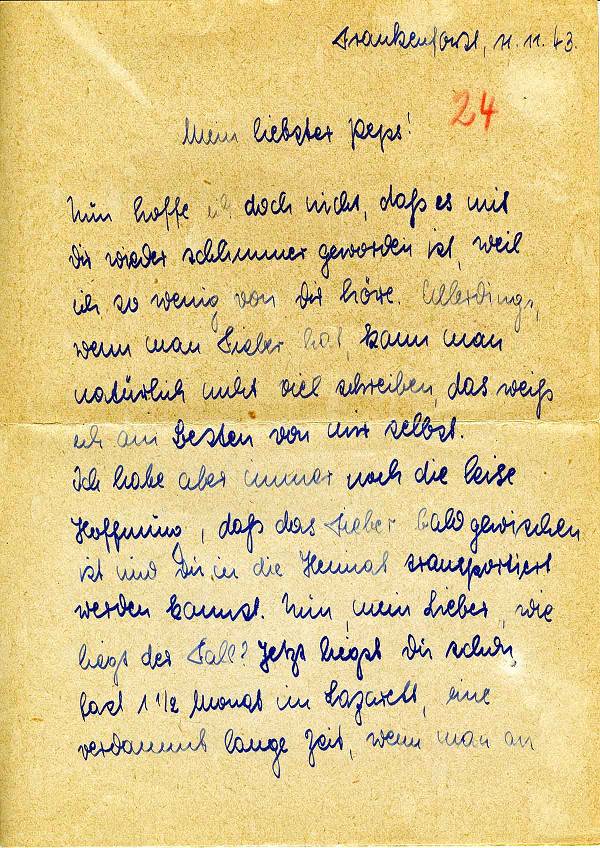 Frankenforst, 11.11.43.
24
Mein liebster Peps!
Nun hoffe ich doch nicht, daß es mit
Dir wieder schlimmer geworden ist, weil
ich so wenig von Dir höre. Allerdings,
wenn man Fieber hat, kann man
natürlich nicht viel schreiben, das weiß
ich am Besten von mir selbst.
Ich habe aber immer noch die leise
Hoffnung, daß das Fieber bald gewichen
ist und Du in die Heimat transportiert
werden kannst. Nun, mein Lieber, wie
liegt der Fall? Jetzt liegst Du schon
fast 1 1/2 Monat im Lazarett, eine
verdammt lange Zeit, wenn man an